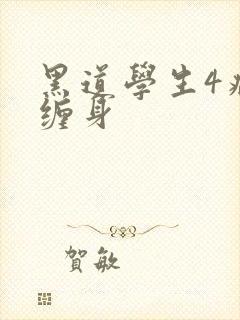 黑道學生4
缠身
賀敏